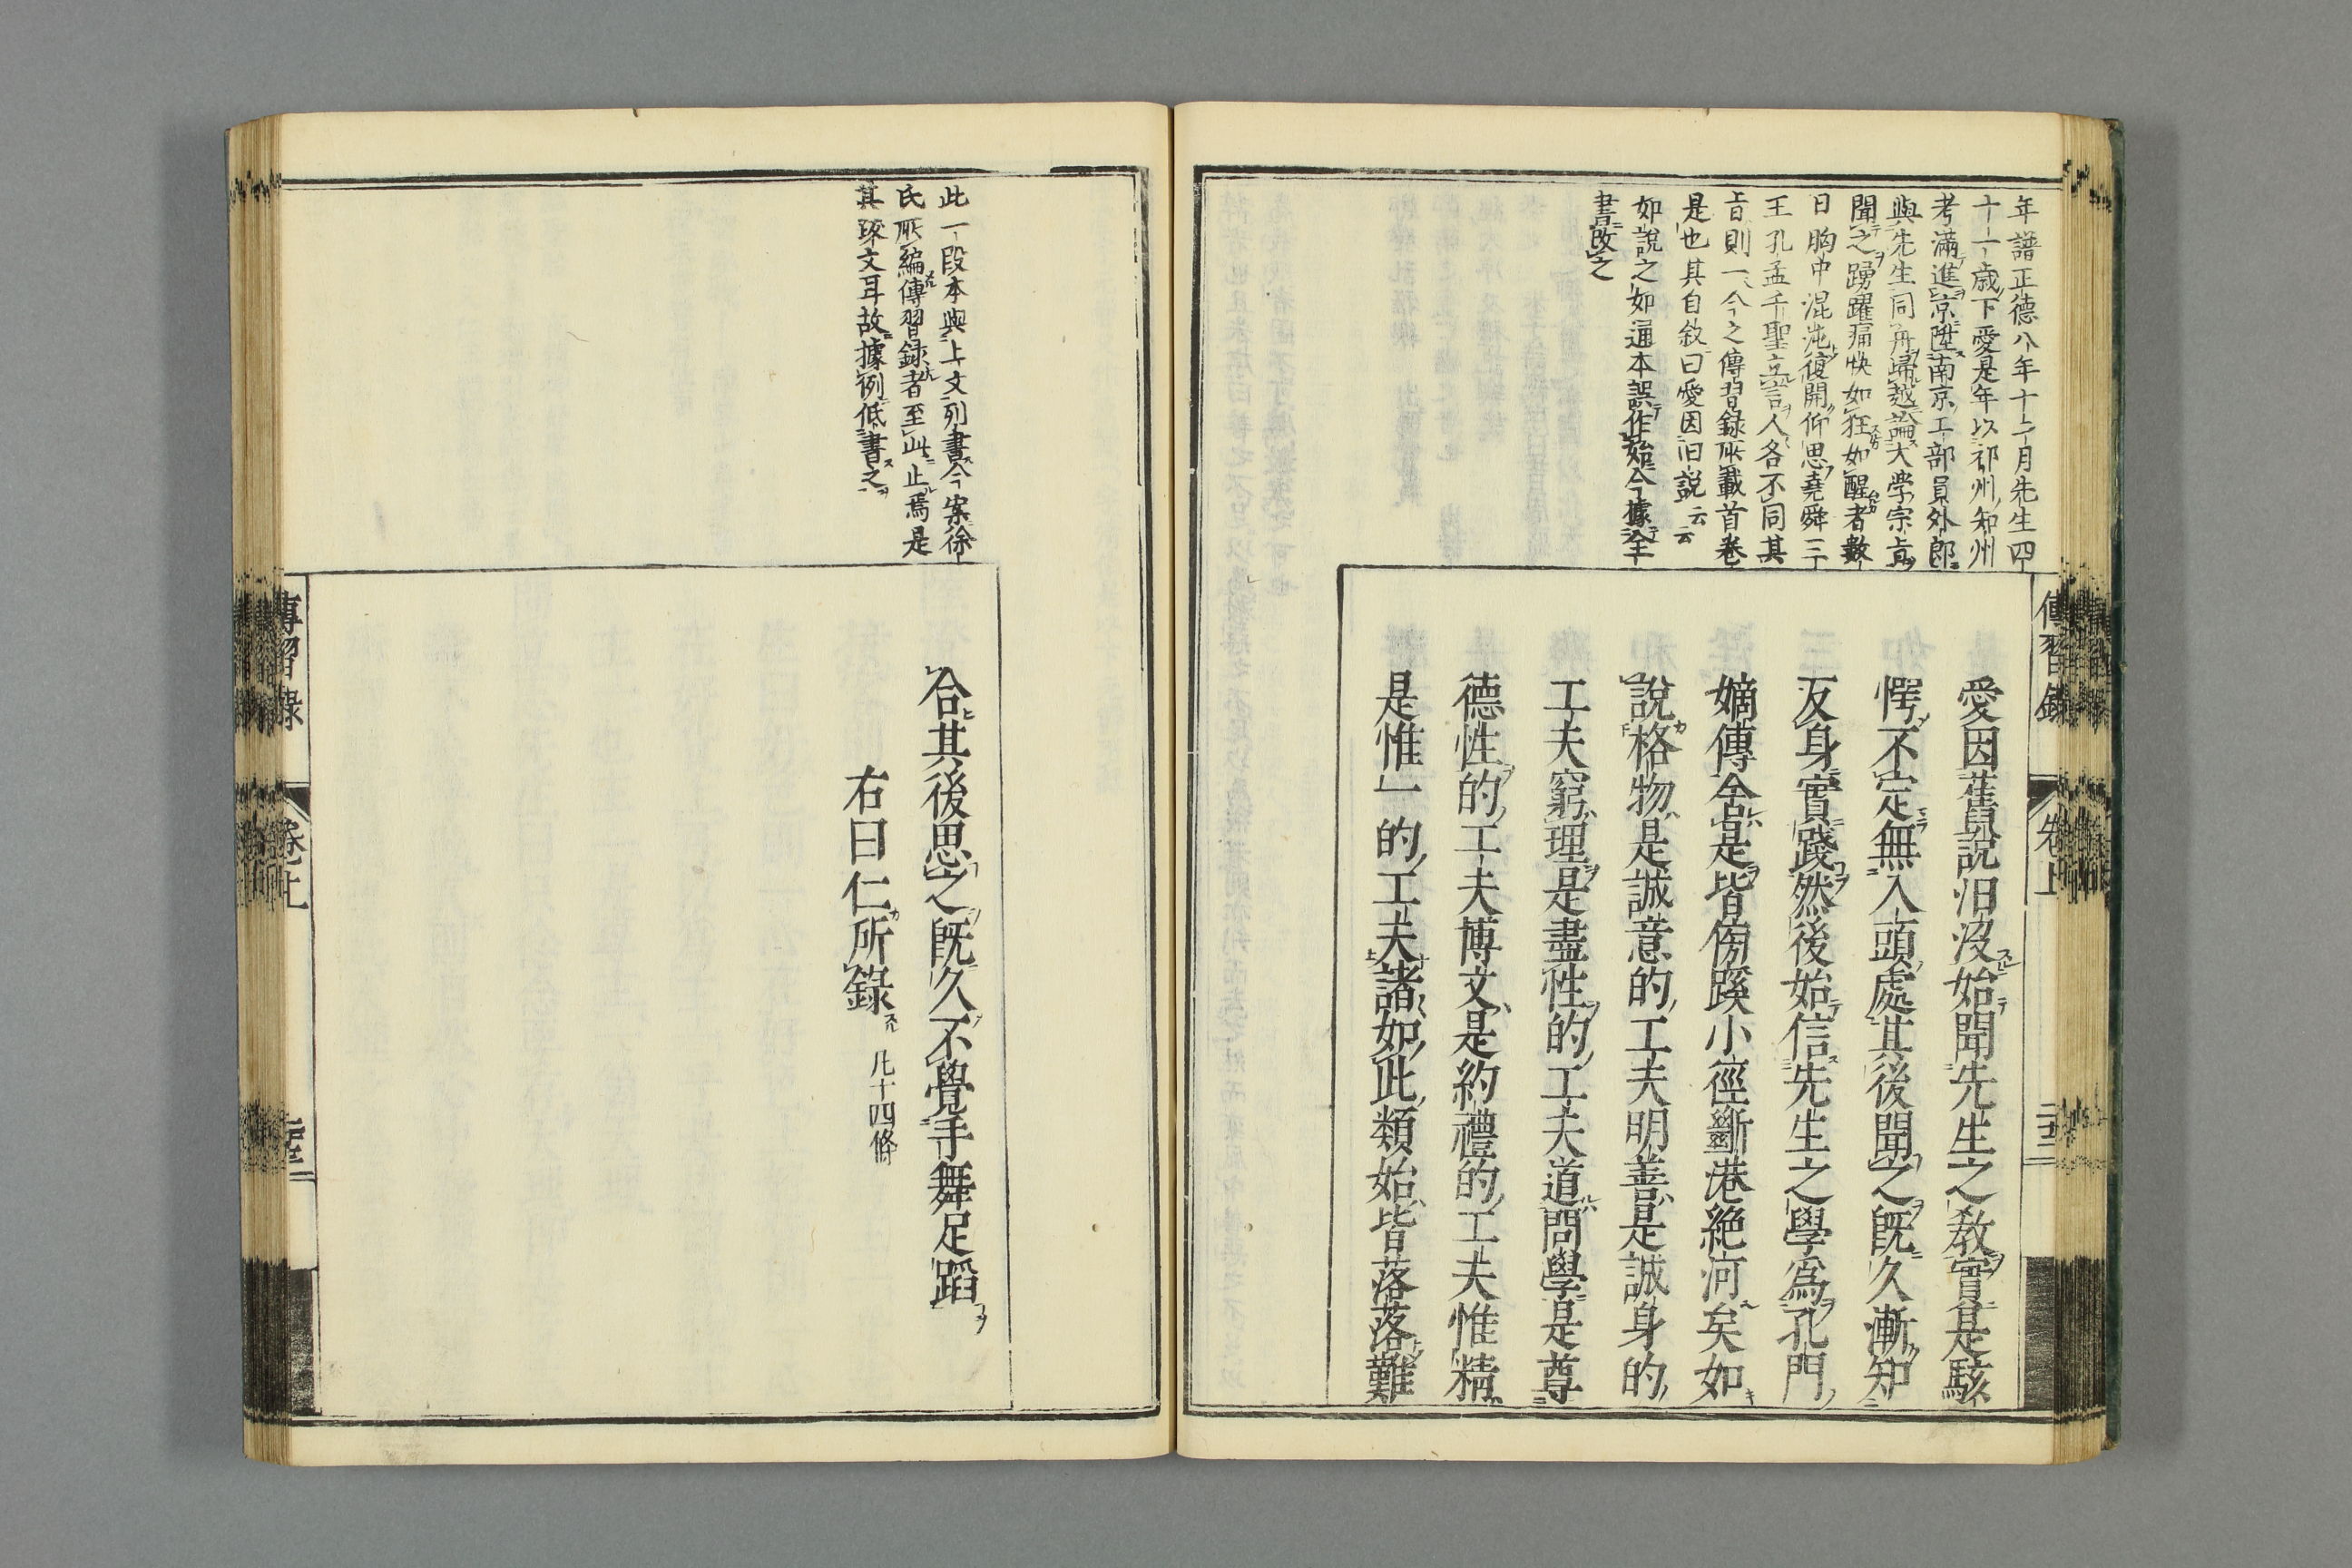 年譜正德八年十二月先生四
十一歲下愛是年以祁州知州
考滿進京陞南京工部員外郎
與先生同舟歸越論大學宗旨
聞之踴躍痛快如狂如醒者數
日胸中混沌復開仰思堯舜三
王孔孟千聖立言人各不同其
旨則一今之傳習録所載首卷
是也其自敘曰愛因旧説云云
如說之如通本誤作始今據全
書改之
傳習錄
卷上
愛因舊說汨沒始聞先生之教實是駭
愕不定無入頭處其後聞之既久漸知
反身實踐然後始信先生之學爲孔門
嫡傳舍是皆傍蹊小徑斷港絕河矣如
說格物是誠意的工夫明善是誠身的
工夫窮理是盡性的工夫道問學是尊
德性的工夫博文是約禮的工夫惟精
是惟一的工夫諸如此類始皆落落難
此一段本與上文列書今案徐
氏所編傳習録者至此止焉是
其䟦文耳故據例低書之
合其後思之既久不覺手舞足蹈
右曰仁所錄 凡十四條
傳習錄
卷上